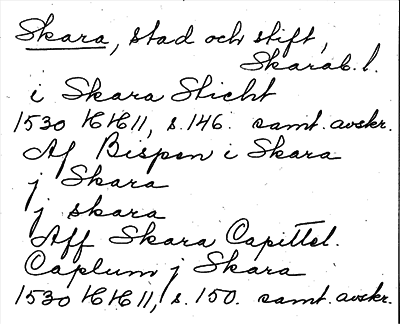 Skara, stad och stift,
Skarab. l.
i Skara Sticht
1530 HH 11, s. 146. samt. avskr.
Af Bispen i Skara
j Skara
j skara
Aff Skara Capittel.
Caplum j Skara
1530 HH 11, s. 150. samt. avskr.